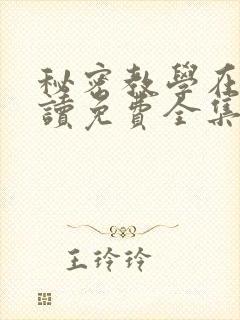 秘密教學在
讀免費全集
王玲玲